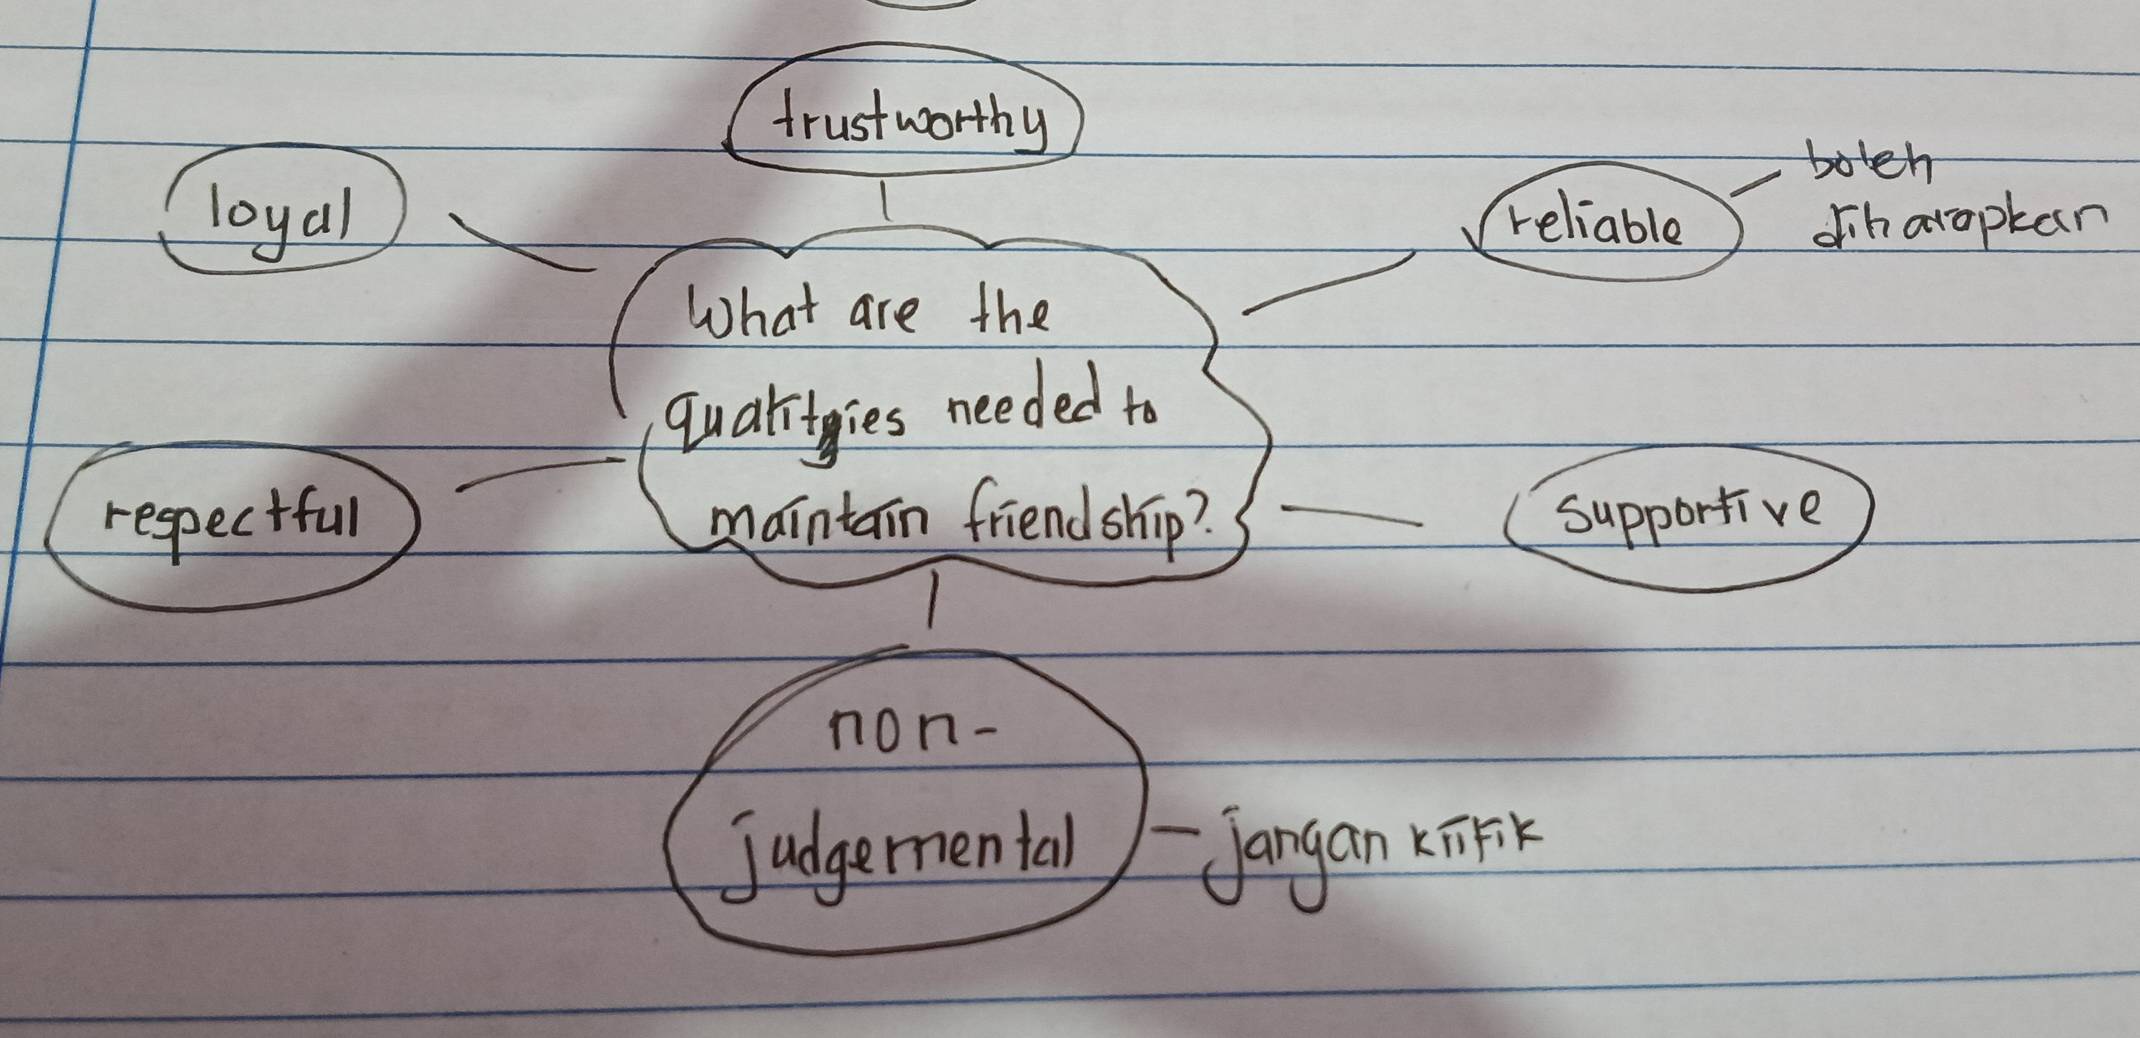 trustworthy
loyal
reliable
boleh
diharapkan
What are the
qualities needed to
maintain friendship?
respectful
supportive
non-
judgemental
- jangan kritik